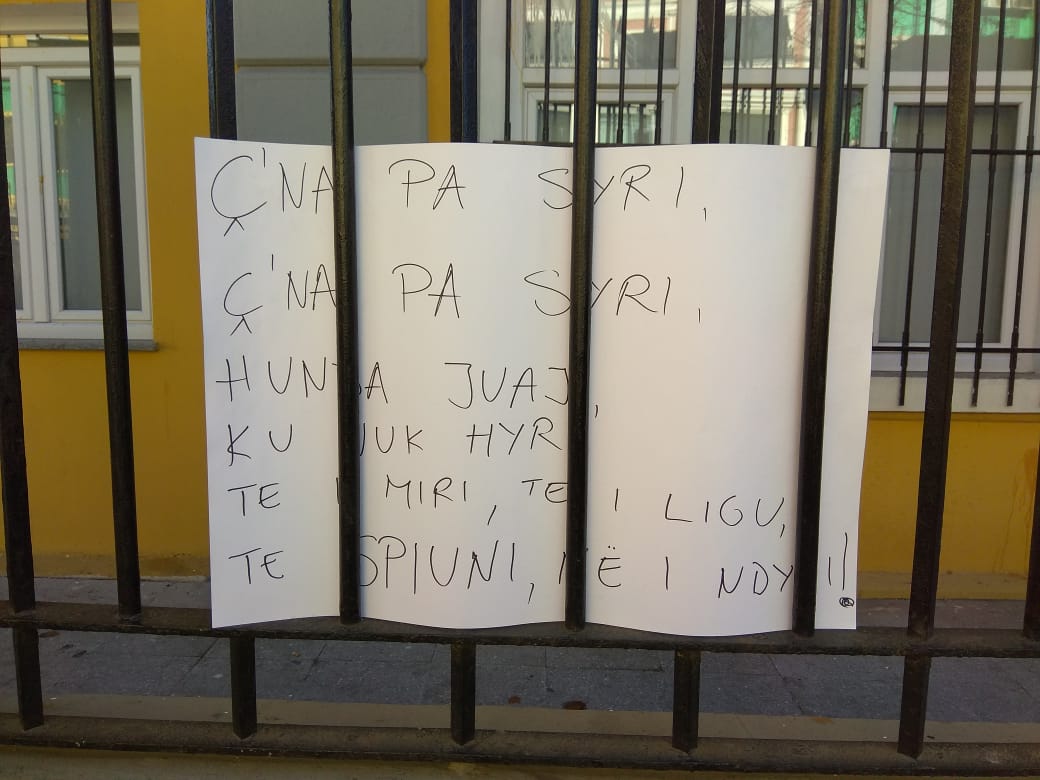 Ç'NA PA SYRI,
Ç'NA PA SYRI,
HUNDA JUAJ,
KU NUK HYRI
TE I MIRI, TE I LIGU,
TE SPIUNI, MË I NDYRI!